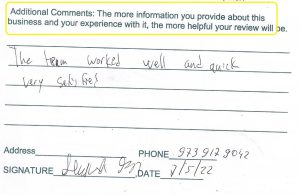 Additional Comments: The more information you provide about this
business and your experience with it, the more helpful your review will be.
The team worked well and quick
very satisfied
Address PHONE 973 912 9042
SIGNATURE DATE 7/5/22